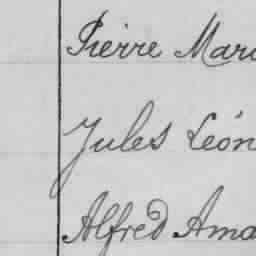 Pierre Mari
Jules León
Alfred Ama